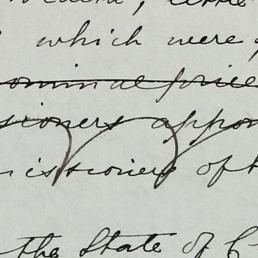 which were
ominal price
sioners appoin
issioners of t
the State of C